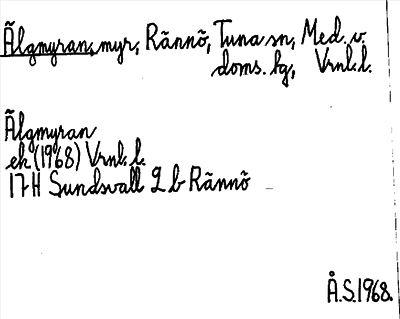 Älgmyran, myr, Rännö, Tuna sn, Med. v.
doms. hg, Vrnl. l.
Älgmyran
ek (1968) Vrnl. l.
17H Sundsvall 2 b Rännö
Å.S.1968.